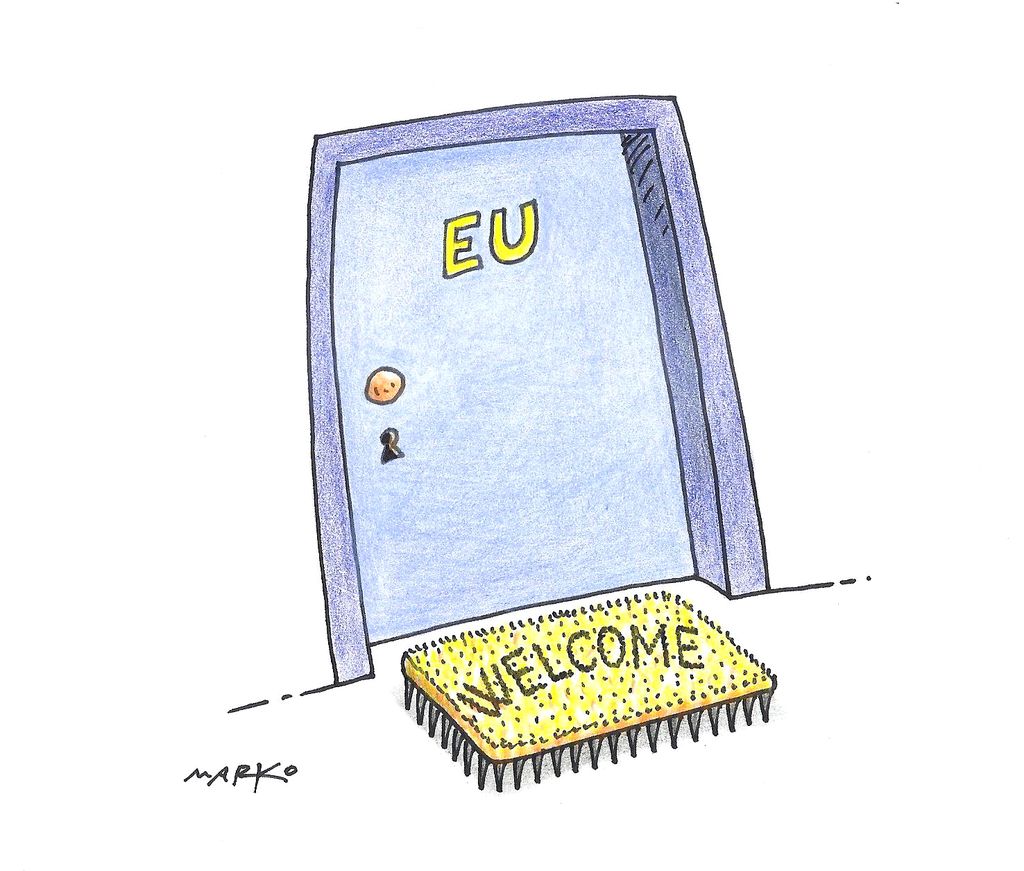 EU
WELCOME
MARKO